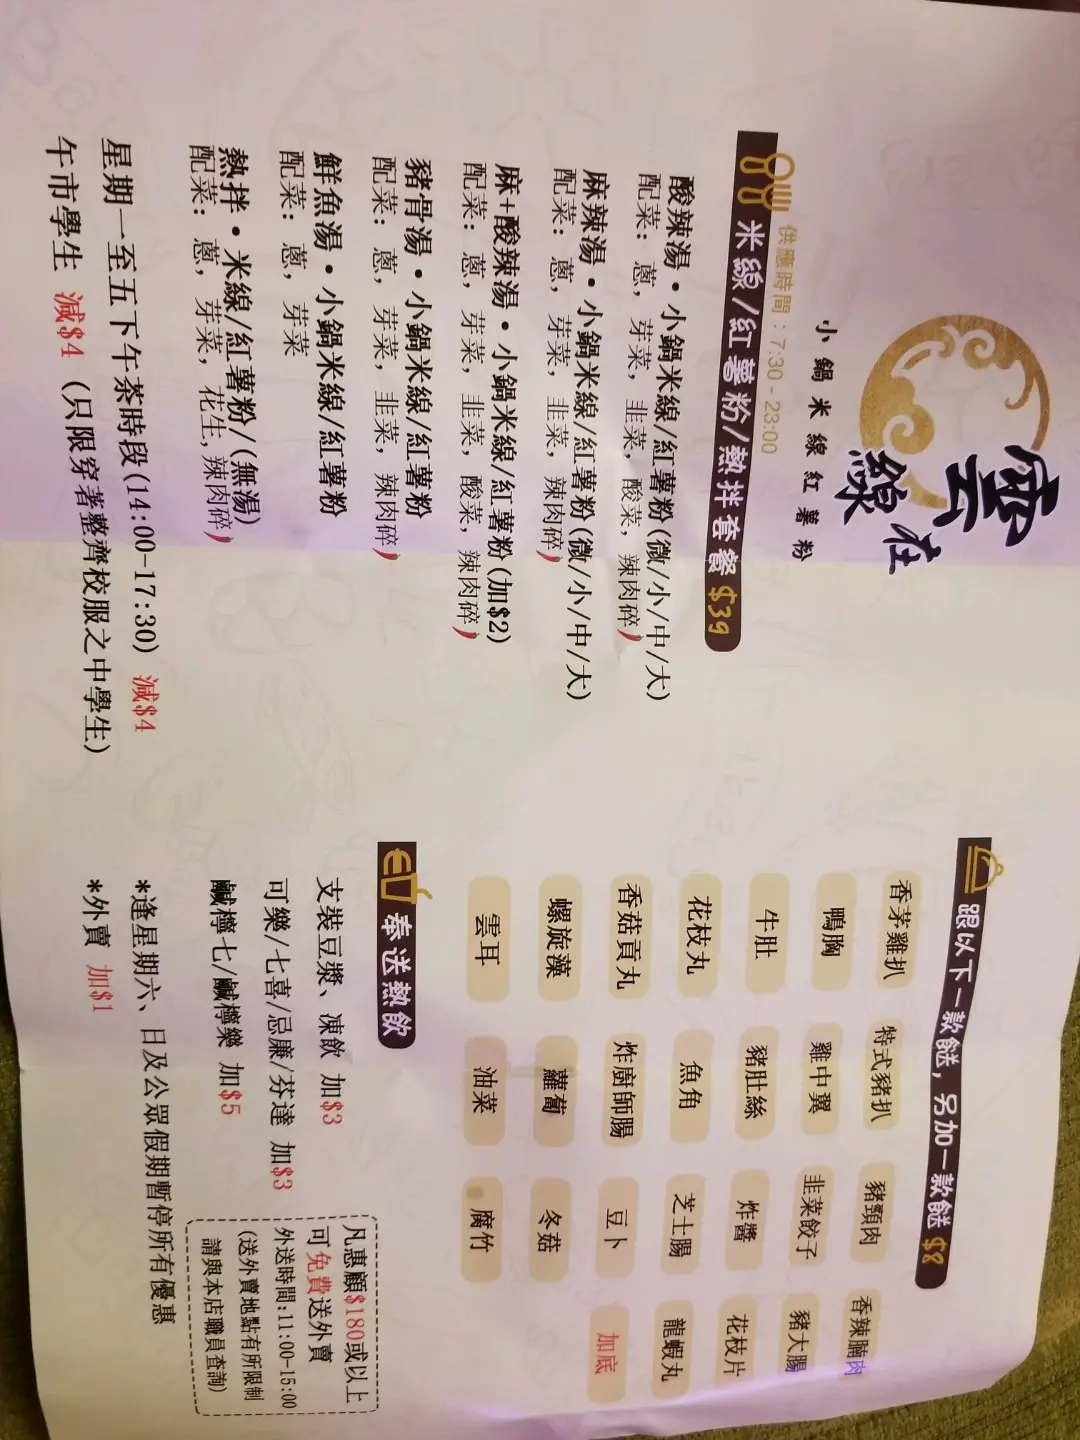 雲在線
小鍋米線紅薯粉
供應時間：7:30-23:00
米線/紅薯粉/熱拌套餐 $39
酸辣湯•小鍋米線/紅薯粉(微/小/中/大)
配菜：蔥，芽菜，韭菜，酸菜，辣肉碎
麻辣湯•小鍋米線/紅薯粉(微/小/中/大)
配菜：蔥，芽菜，韭菜，辣肉碎
麻+酸辣湯•小鍋米線/紅薯粉(加$2)
配菜：蔥，芽菜，韭菜，酸菜，辣肉碎
豬骨湯•小鍋米線/紅薯粉
配菜：蔥，芽菜，韭菜，辣肉碎
鮮魚湯•小鍋米線/紅薯粉
配菜：蔥，芽菜
熱拌•米線/紅薯粉/(無湯)
配菜：蔥，芽菜，花生，辣肉碎
星期一至五下午茶時段(14:00-17:30) 減$4
午市學生 減$4 (只限穿著整齊校服之中學生)
跟以下一款餸，另加一款餸 $8
香茅雞扒 特式豬扒 豬頸肉 香辣腩肉
鴨胸 雞中翼 韭菜餃子 豬大腸
牛肚 豬肚絲 炸醬 花枝片
花枝丸 魚角 芝士腸 龍蝦丸
香菇貢丸 炸廚師腸 豆卜 加底
螺旋藻 蘿蔔 冬菇
雲耳 油菜 腐竹
奉送熱飲
支裝豆漿、凍飲 加$3
可樂/七喜/忌廉/芬達 加$3
鹹檸七/鹹檸樂 加$5
*逢星期六、日及公眾假期暫停所有優惠
*外賣 加$1
凡惠顧$180或以上
可免費送外賣
外送時間:11:00-15:00
(送外賣地點有所限制
請與本店職員查詢)